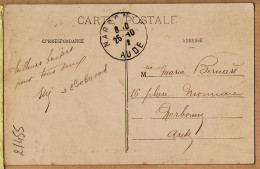 CARTE POSTALE
CORRESPONDANCE
ADRESSE
NARBONNE
8-10
25-10
AUDE
Meilleurs baisers
pour tous deux
M Maria Bernard
16 place
Narbonne
Aude
21455